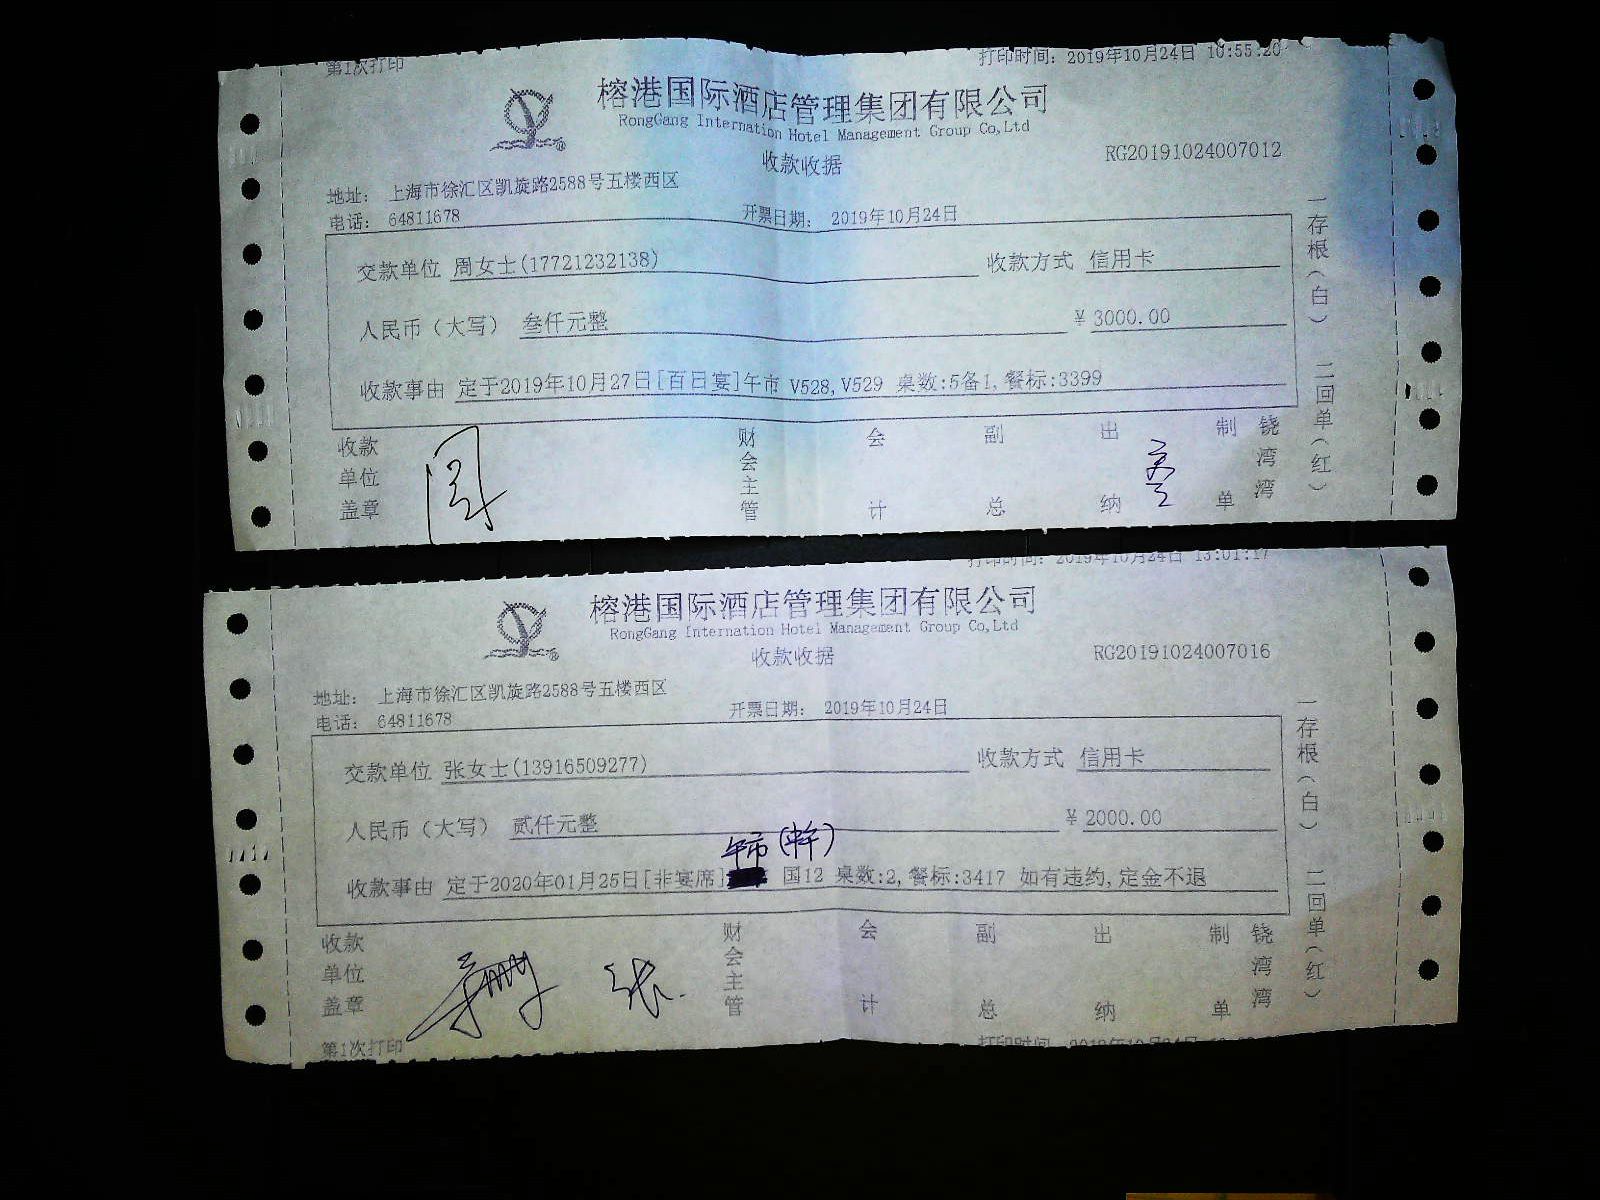 第1次打印 打印时间：2019年10月24日 10:55:20
榕港国际酒店管理集团有限公司
RongGang Internation Hotel Management Group Co,Ltd
收款收据 RG20191024007012
地址： 上海市徐汇区凯旋路2588号五楼西区
电话： 64811678 开票日期： 2019年10月24日
交款单位 周女士(17721232138) 收款方式 信用卡
人民币（大写） 叁仟元整 ¥ 3000.00
收款事由 定于2019年10月27日[百日宴]午市 V528,V529 桌数:5备1,餐标:3399
一存根（白） 二回单（红）
收款单位盖章 财会主管 会计 副总 出纳 制单 饶湾湾
打印时间：2019年10月24日 13:01:17
榕港国际酒店管理集团有限公司
RongGang Internation Hotel Management Group Co,Ltd
收款收据 RG20191024007016
地址： 上海市徐汇区凯旋路2588号五楼西区
电话： 64811678 开票日期： 2019年10月24日
交款单位 张女士(13916509277) 收款方式 信用卡
人民币（大写） 贰仟元整 ¥ 2000.00
午市
收款事由 定于2020年01月25日[非宴席] 国12 桌数:2,餐标:3417 如有违约,定金不退
一存根（白） 二回单（红）
收款单位盖章 张 财会主管 会计 副总 出纳 制单 饶湾湾
第1次打印 打印时间